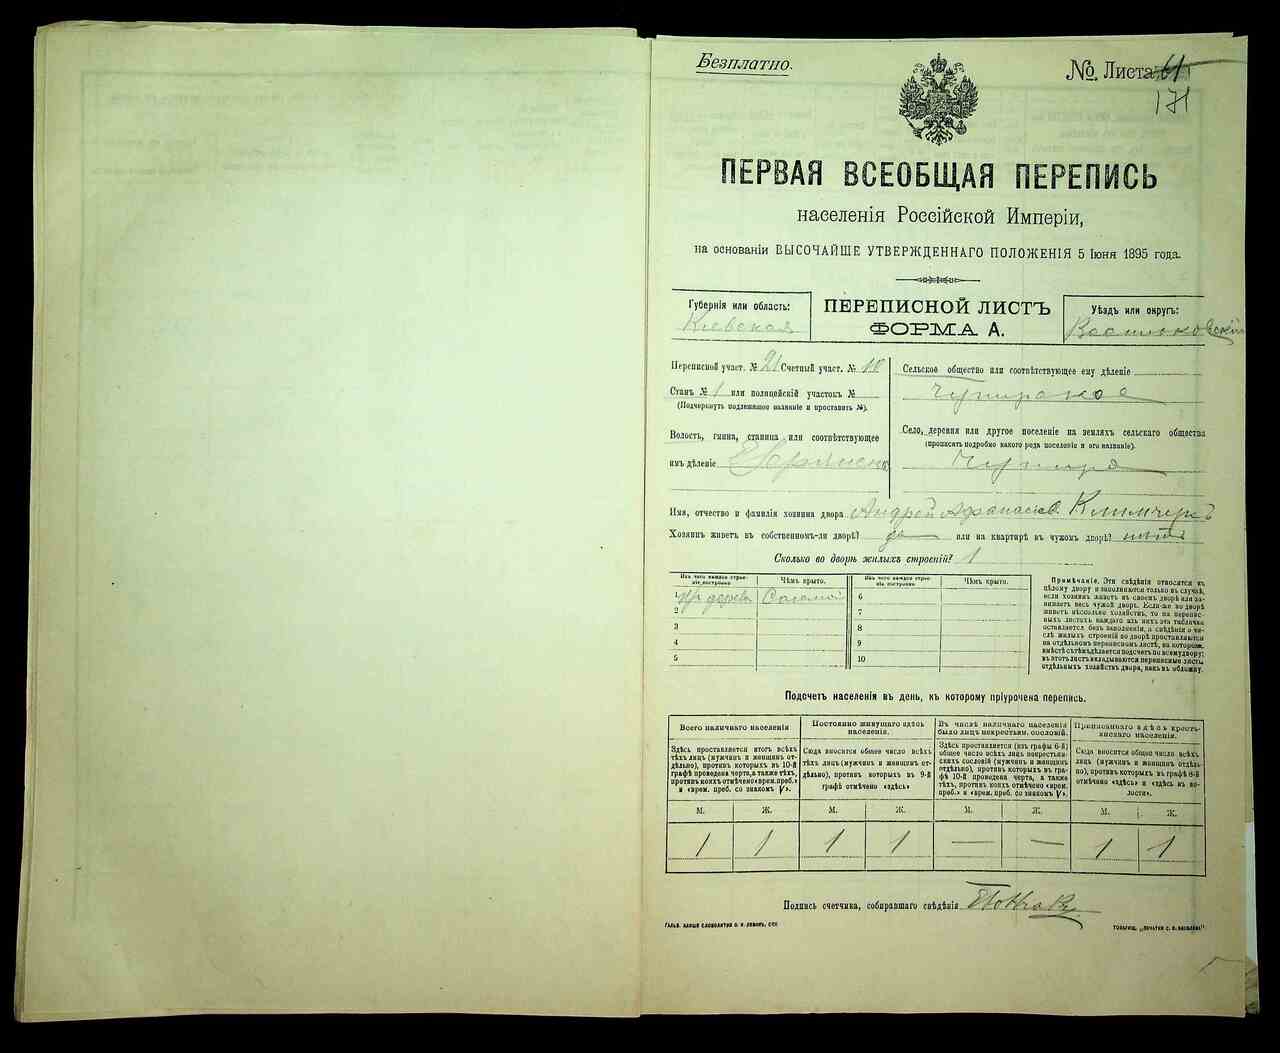 Безплатно.
№ Листа 61
171
ПЕРВАЯ ВСЕОБЩАЯ ПЕРЕПИСЬ
населенія Россійской Имперіи,
на основаніи ВЫСОЧАЙШЕ УТВЕРЖДЕННАГО ПОЛОЖЕНІЯ 5 Іюня 1895 года.
Губернія или область:
Кіевская
ПЕРЕПИСНОЙ ЛИСТЪ
ФОРМА А.
Уѣздъ или округъ:
Васильковскій
Переписной участ. № 21 Счетный участ. № 10
Станъ № 1 или полицейскій участокъ №
(Подчеркнуть подлежащее названіе и проставить №).
Волость, гмина, станица или соотвѣтствующее
имъ дѣленіе
Сельское общество или соотвѣтствующее ему дѣленіе
Чупирское
Село, деревня или другое поселеніе на земляхъ сельскаго общества
(прописать подробно какого рода поселеніе и его названіе).
Чупира
Имя, отчество и фамилія хозяина двора Андрей Афанасіев.
Хозяинъ живетъ въ собственномъ-ли дворѣ? да или на квартирѣ въ чужомъ дворѣ? нѣтъ
Сколько во дворѣ жилыхъ строеній? 1
Изъ чего каждое строеніе построено
Чѣмъ крыто.
Изъ чего каждое строеніе построено
Чѣмъ крыто.
1 Изъ дерева Соломой
2
3
4
5
6
7
8
9
10
Примѣчаніе. Эти свѣдѣнія относятся къ
цѣлому двору и заполняются только въ случаѣ,
если хозяинъ живетъ въ своемъ дворѣ или занимаетъ
весь чужой дворъ. Если-же во дворѣ
живетъ нѣсколько хозяйствъ, то на переписныхъ
листахъ каждаго изъ нихъ эта табличка
оставляется безъ заполненія, а свѣдѣнія о числѣ
жилыхъ строеній во дворѣ проставляются
на отдѣльномъ переписномъ листѣ, на которомъ
вмѣстѣ съ тѣмъ дѣлается подсчетъ по всему двору;
въ этотъ листъ вкладываются переписные листы
отдѣльныхъ хозяйствъ двора, какъ въ обложку.
Подсчетъ населенія въ день, къ которому пріурочена перепись.
Всего наличнаго населенія
Здѣсь проставляется итогъ всѣхъ
тѣхъ лицъ (мужчинъ и женщинъ отдѣльно),
противъ которыхъ въ 10-й
графѣ проведена черта, а также тѣхъ,
противъ коихъ отмѣчено «врем. преб.»
и «врем. преб. со знакомъ V».
Постоянно живущаго здѣсь
населенія.
Сюда вносится общее число всѣхъ
тѣхъ лицъ (мужчинъ и женщинъ отдѣльно),
противъ которыхъ въ 9-й
графѣ отмѣчено «здѣсь»
Въ числѣ наличнаго населенія
было лицъ некрестьян. сословій.
Здѣсь проставляется (изъ графы 6-й)
общее число всѣхъ лицъ некрестьянскихъ
сословій (мужчинъ и женщинъ
отдѣльно), противъ которыхъ въ графѣ
10-й проведена черта, а также
тѣхъ, противъ коихъ отмѣчено «врем.
преб.» и «врем. преб. со знакомъ V».
Приписаннаго здѣсь крестьянскаго
населенія.
Сюда вносится общее число всѣхъ
лицъ (мужчинъ и женщинъ отдѣльно),
противъ которыхъ въ графѣ 8-й
отмѣчено «здѣсь» и «здѣсь въ волости».
М. Ж. М. Ж. М. Ж. М. Ж.
1 1 1 1 — — 1 1
Подпись счетчика, собиравшаго свѣдѣнія